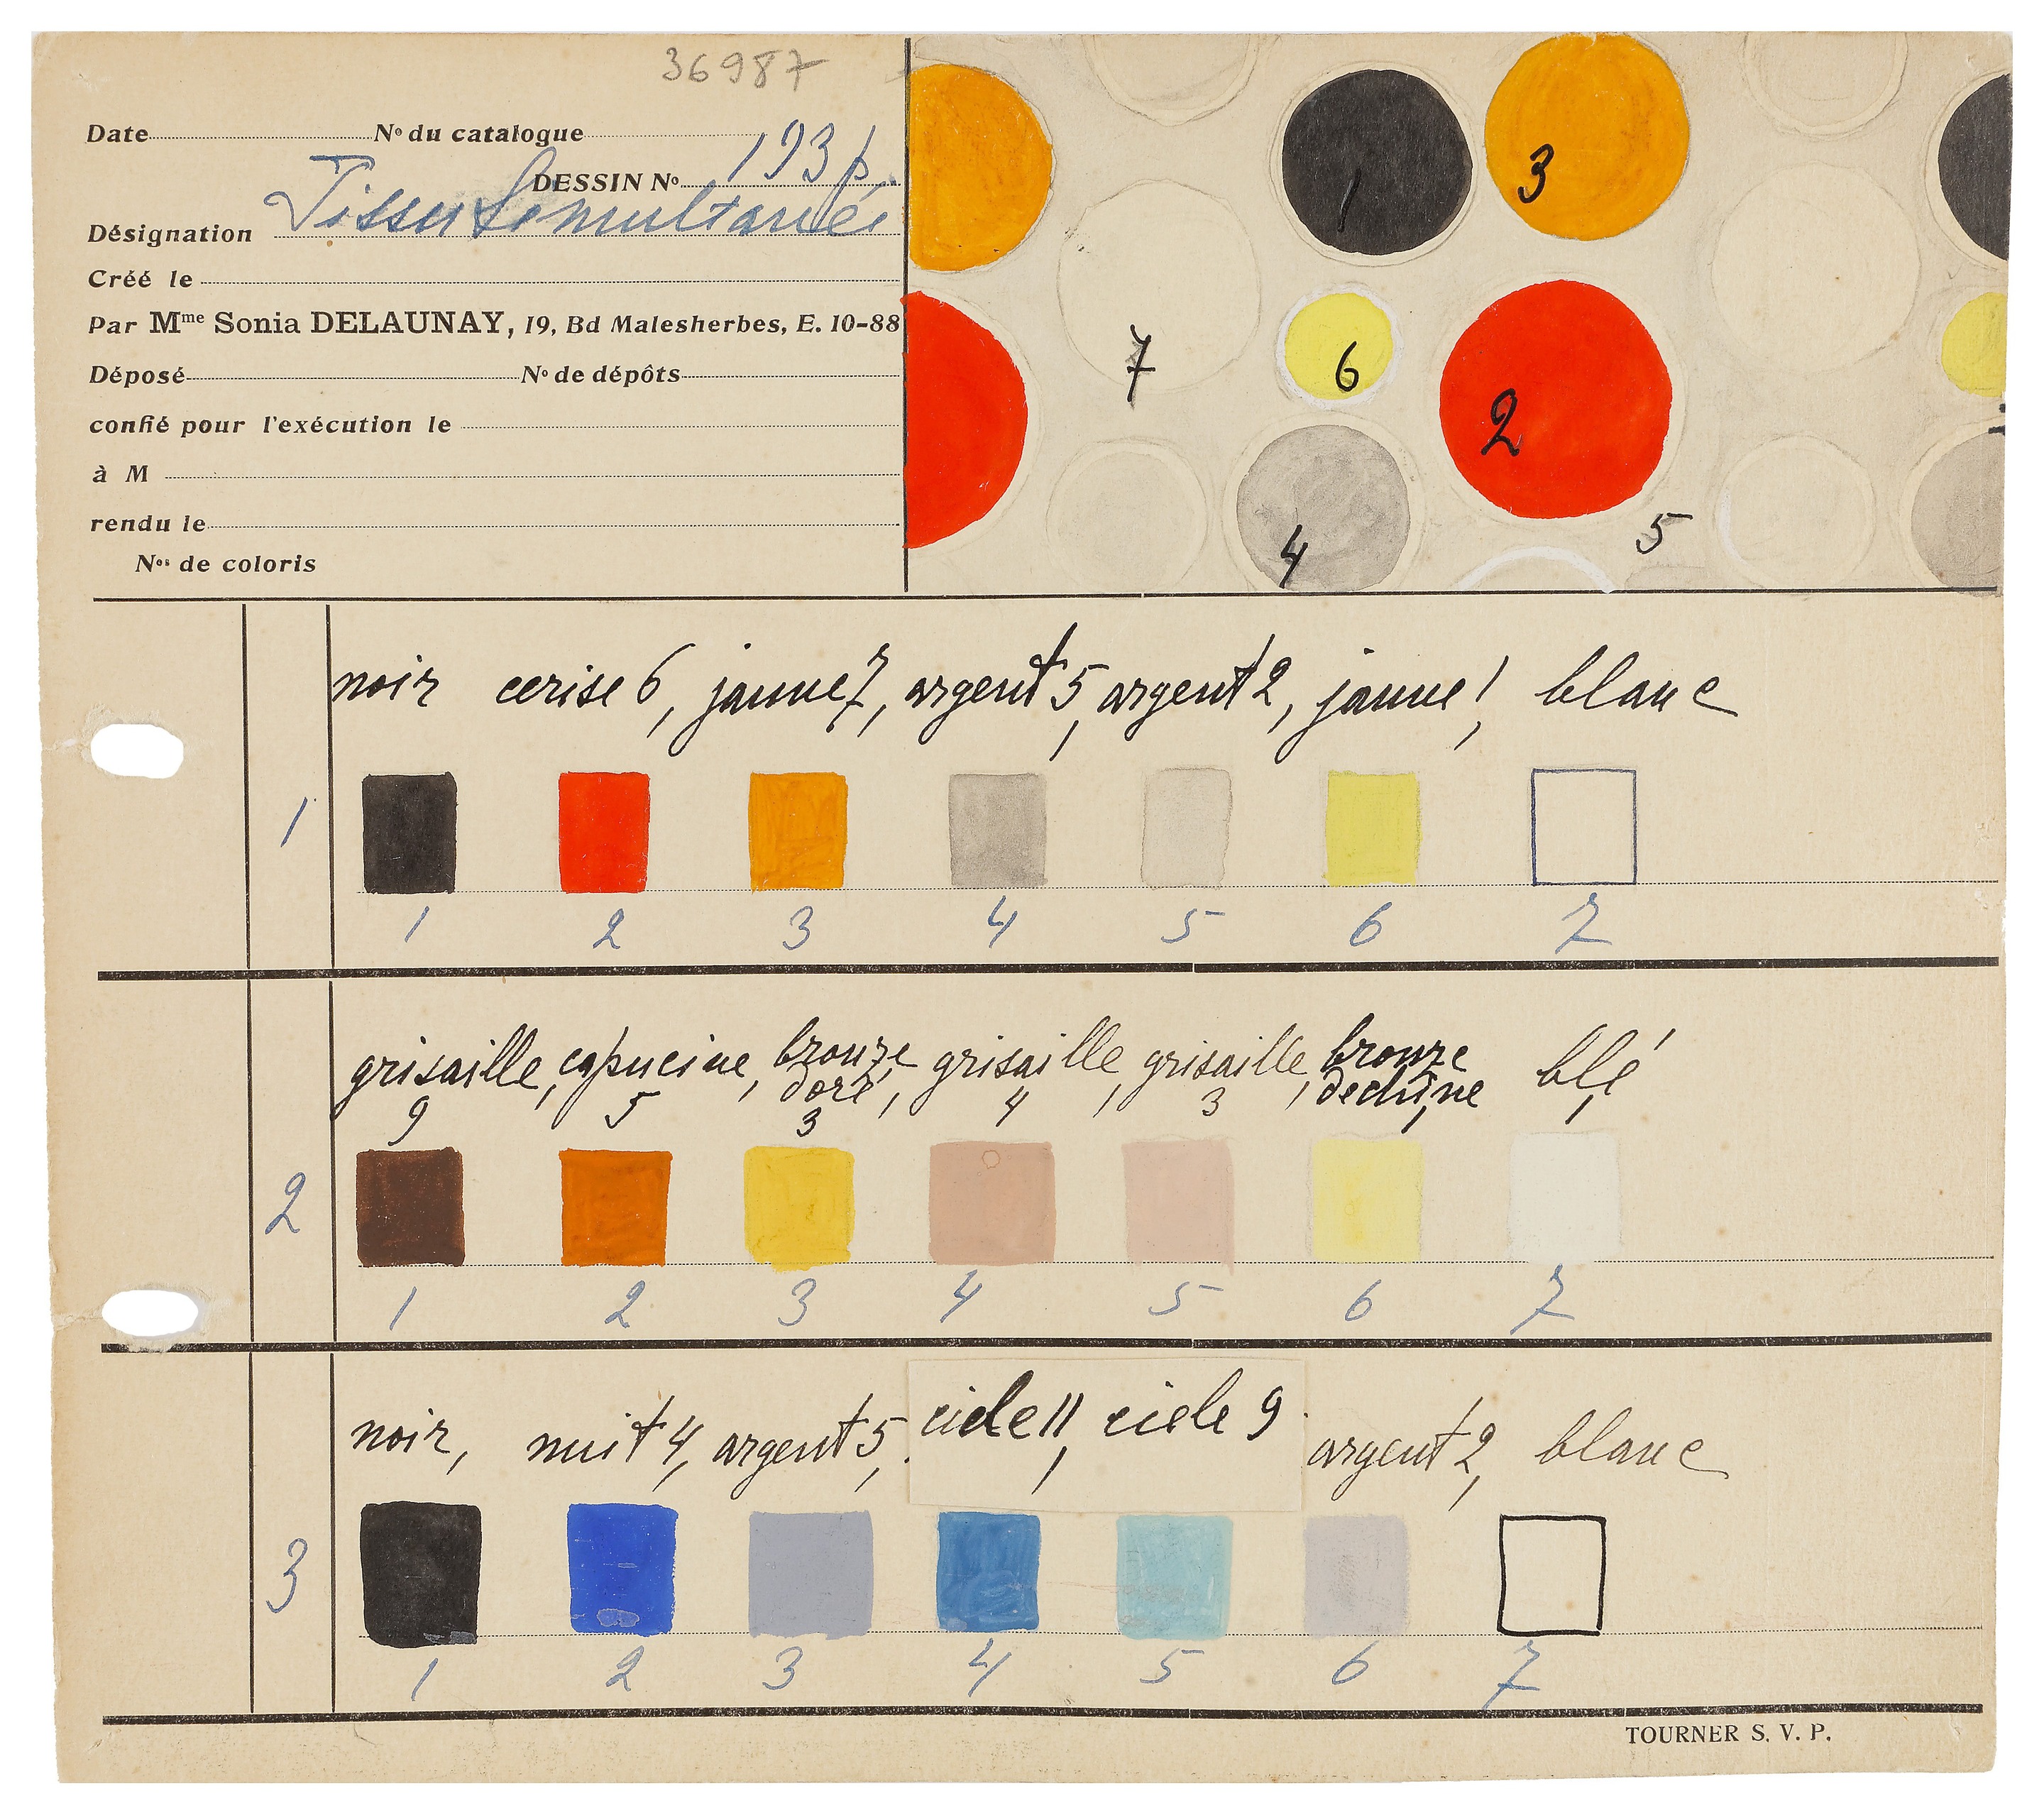 36987
Date N° du catalogue
DESSIN N° 193 p.
Désignation Tissu Simultané
Créé le
Par Mme Sonia DELAUNAY, 19, Bd Malesherbes, E. 10-88
Déposé N° de dépôts
confié pour l'exécution le
à M
rendu le
Nos de coloris
1 3
7 6 2
4 5
noir cerise 6, jaune 7, argent 5, argent 2, jaune 1, blanc
1
1 2 3 4 5 6 7
grisaille, capucine, bronze, grisaille, grisaille, bronze blé
9 5 doré, 4 3
3
2
1 2 3 4 5 6 7
noir, nuit 4, argent 5, ciele 11, ciele 9 argent 2, blanc
3
1 2 3 4 5 6 7
TOURNER S. V. P.